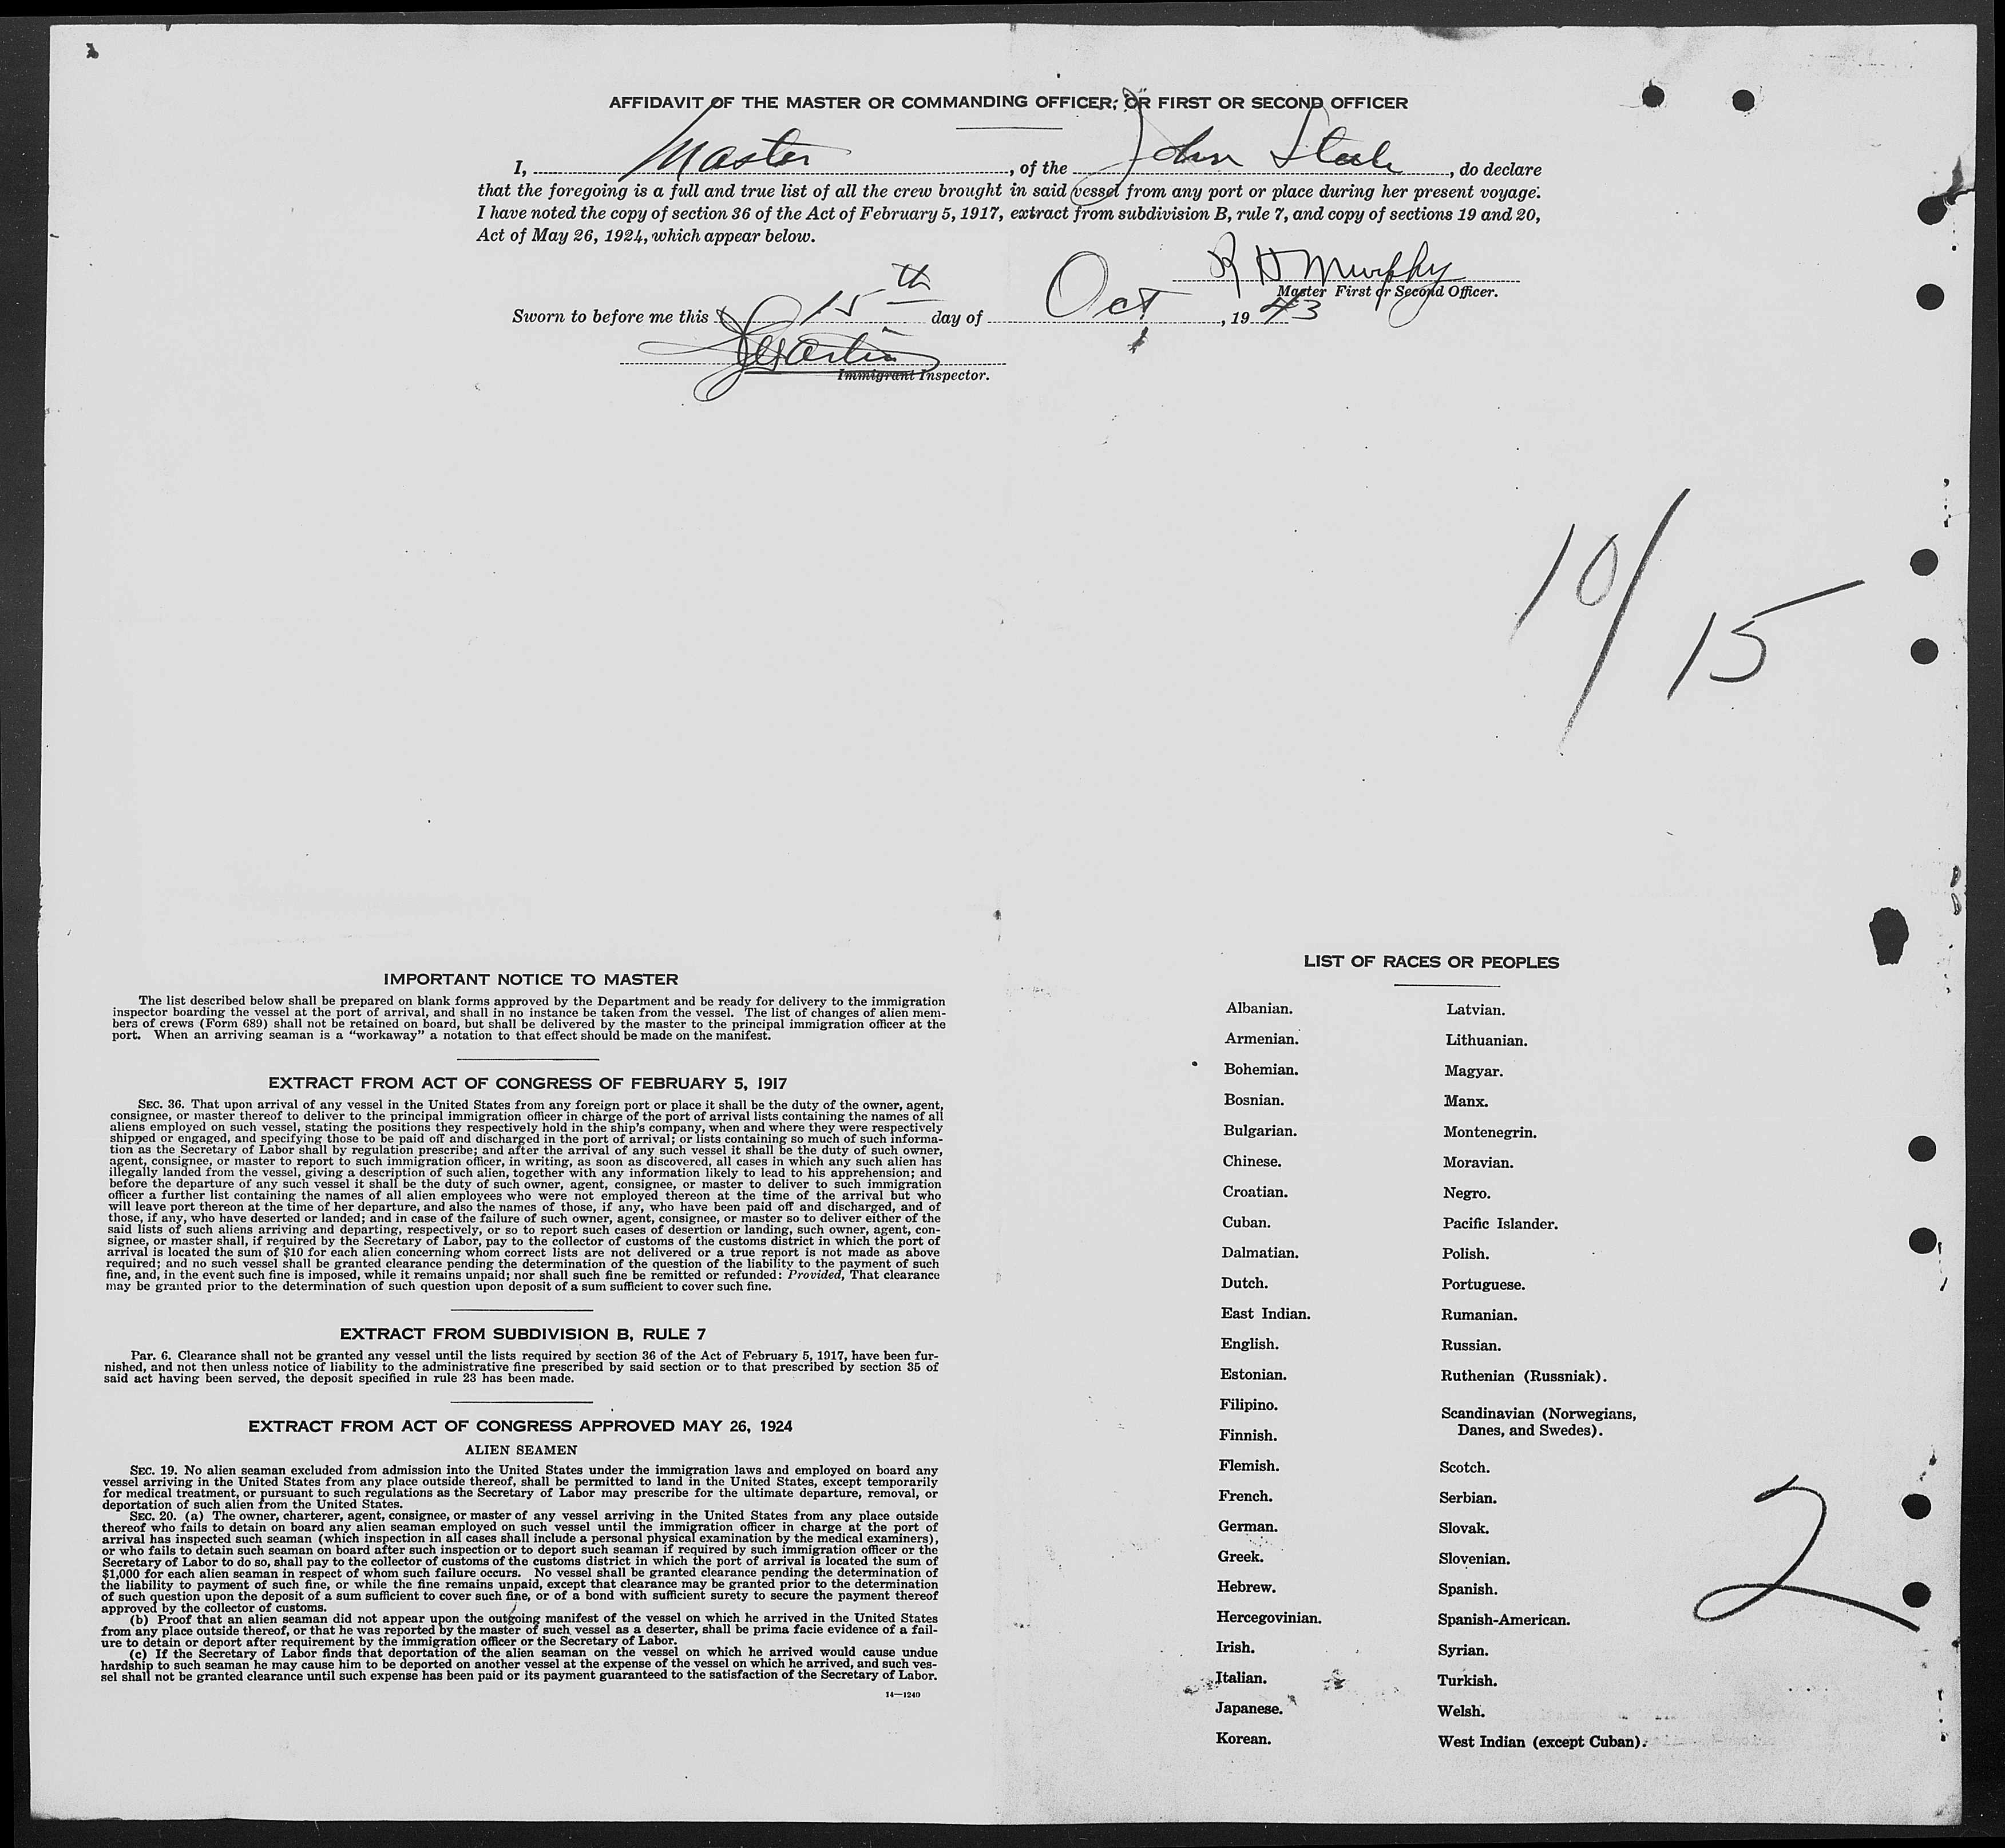 AFFIDAVIT OF THE MASTER OR COMMANDING OFFICER, OR FIRST OR SECOND OFFICER
I, Master, of the John Steele, do declare
that the foregoing is a full and true list of all the crew brought in said vessel from any port or place during her present voyage.
I have noted the copy of section 36 of the Act of February 5, 1917, extract from subdivision B, rule 7, and copy of sections 19 and 20,
Act of May 26, 1924, which appear below.
R H Murphy
Master First or Second Officer.
Sworn to before me this 15th day of Oct, 1943
Immigrant Inspector.
10/15
IMPORTANT NOTICE TO MASTER
The list described below shall be prepared on blank forms approved by the Department and be ready for delivery to the immigration
inspector boarding the vessel at the port of arrival, and shall in no instance be taken from the vessel. The list of changes of alien mem-
bers of crews (Form 689) shall not be retained on board, but shall be delivered by the master to the principal immigration officer at the
port. When an arriving seaman is a "workaway" a notation to that effect should be made on the manifest.
EXTRACT FROM ACT OF CONGRESS OF FEBRUARY 5, 1917
SEC. 36. That upon arrival of any vessel in the United States from any foreign port or place it shall be the duty of the owner, agent,
consignee, or master thereof to deliver to the principal immigration officer in charge of the port of arrival lists containing the names of all
aliens employed on such vessel, stating the positions they respectively hold in the ship's company, when and where they were respectively
shipped or engaged, and specifying those to be paid off and discharged in the port of arrival; or lists containing so much of such informa-
tion as the Secretary of Labor shall by regulation prescribe; and after the arrival of any such vessel it shall be the duty of such owner,
agent, consignee, or master to report to such immigration officer, in writing, as soon as discovered, all cases in which any such alien has
illegally landed from the vessel, giving a description of such alien, together with any information likely to lead to his apprehension; and
before the departure of any such vessel it shall be the duty of such owner, agent, consignee, or master to deliver to such immigration
officer a further list containing the names of all alien employees who were not employed thereon at the time of the arrival but who
will leave port thereon at the time of her departure, and also the names of those, if any, who have been paid off and discharged, and of
those, if any, who have deserted or landed; and in case of the failure of such owner, agent, consignee, or master so to deliver either of the
said lists of such aliens arriving and departing, respectively, or so to report such cases of desertion or landing, such owner, agent, con-
signee, or master shall, if required by the Secretary of Labor, pay to the collector of customs of the customs district in which the port of
arrival is located the sum of $10 for each alien concerning whom correct lists are not delivered or a true report is not made as above
required; and no such vessel shall be granted clearance pending the determination of the question of the liability to the payment of such
fine, and, in the event such fine is imposed, while it remains unpaid; nor shall such fine be remitted or refunded: Provided, That clearance
may be granted prior to the determination of such question upon deposit of a sum sufficient to cover such fine.
EXTRACT FROM SUBDIVISION B, RULE 7
Par. 6. Clearance shall not be granted any vessel until the lists required by section 36 of the Act of February 5, 1917, have been fur-
nished, and not then unless notice of liability to the administrative fine prescribed by said section or to that prescribed by section 35 of
said act having been served, the deposit specified in rule 23 has been made.
EXTRACT FROM ACT OF CONGRESS APPROVED MAY 26, 1924
ALIEN SEAMEN
SEC. 19. No alien seaman excluded from admission into the United States under the immigration laws and employed on board any
vessel arriving in the United States from any place outside thereof, shall be permitted to land in the United States, except temporarily
for medical treatment, or pursuant to such regulations as the Secretary of Labor may prescribe for the ultimate departure, removal, or
deportation of such alien from the United States.
SEC. 20. (a) The owner, charterer, agent, consignee, or master of any vessel arriving in the United States from any place outside
thereof who fails to detain on board any alien seaman employed on such vessel until the immigration officer in charge at the port of
arrival has inspected such seaman (which inspection in all cases shall include a personal physical examination by the medical examiners),
or who fails to detain such seaman on board after such inspection or to deport such seaman if required by such immigration officer or the
Secretary of Labor to do so, shall pay to the collector of customs of the customs district in which the port of arrival is located the sum of
$1,000 for each alien seaman in respect of whom such failure occurs. No vessel shall be granted clearance pending the determination of
the liability to payment of such fine, or while the fine remains unpaid, except that clearance may be granted prior to the determination
of such question upon the deposit of a sum sufficient to cover such fine, or of a bond with sufficient surety to secure the payment thereof
approved by the collector of customs.
(b) Proof that an alien seaman did not appear upon the outgoing manifest of the vessel on which he arrived in the United States
from any place outside thereof, or that he was reported by the master of such vessel as a deserter, shall be prima facie evidence of a fail-
ure to detain or deport after requirement by the immigration officer or the Secretary of Labor.
(c) If the Secretary of Labor finds that deportation of the alien seaman on the vessel on which he arrived would cause undue
hardship to such seaman he may cause him to be deported on another vessel at the expense of the vessel on which he arrived, and such ves-
sel shall not be granted clearance until such expense has been paid or its payment guaranteed to the satisfaction of the Secretary of Labor.
14—1240
LIST OF RACES OR PEOPLES
Albanian.
Armenian.
Bohemian.
Bosnian.
Bulgarian.
Chinese.
Croatian.
Cuban.
Dalmatian.
Dutch.
East Indian.
English.
Estonian.
Filipino.
Finnish.
Flemish.
French.
German.
Greek.
Hebrew.
Hercegovinian.
Irish.
Italian.
Japanese.
Korean.
Latvian.
Lithuanian.
Magyar.
Manx.
Montenegrin.
Moravian.
Negro.
Pacific Islander.
Polish.
Portuguese.
Rumanian.
Russian.
Ruthenian (Russniak).
Scandinavian (Norwegians,
Danes, and Swedes).
Scotch.
Serbian.
Slovak.
Slovenian.
Spanish.
Spanish-American.
Syrian.
Turkish.
Welsh.
West Indian (except Cuban).
2